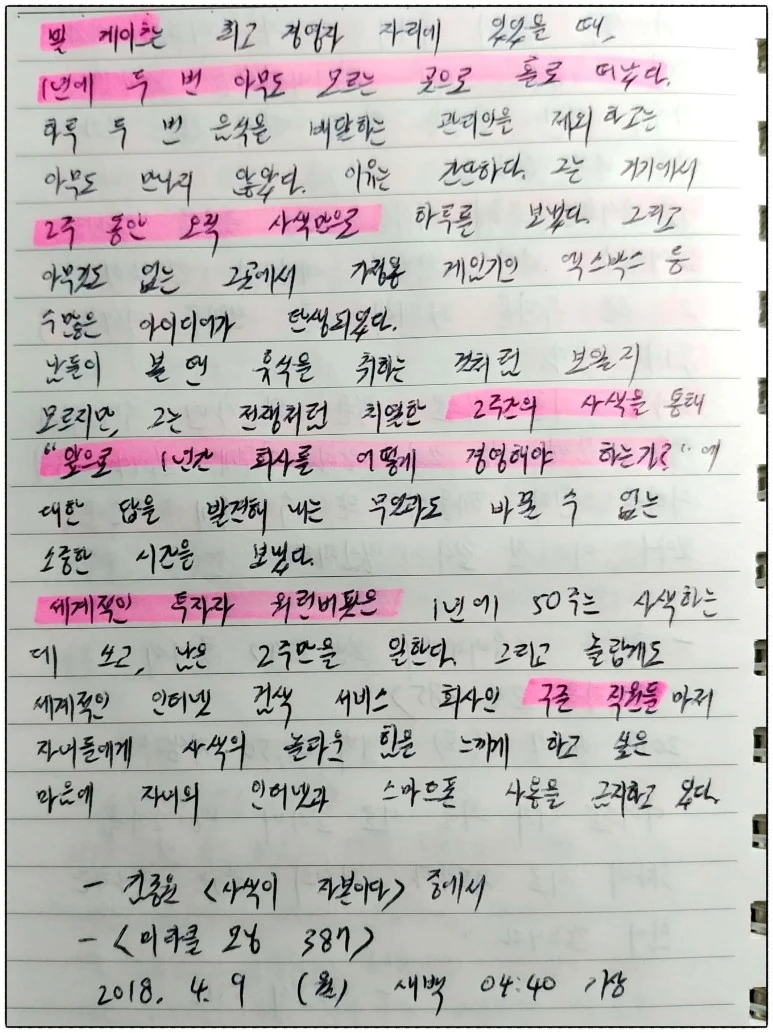 빌 게이츠는 최고 경영자 자리에 있었을 때,
1년에 두 번 아무도 모르는 곳으로 홀로 떠났다.
하루 두 번 음식을 배달하는 관리인을 제외하고는
아무도 만나지 않았다. 이유는 간단하다. 그는 거기에서
2주 동안 오직 사색만으로 하루를 보냈다. 그리고
아무것도 없는 그곳에서 가정용 게임기인 엑스박스 등
수많은 아이디어가 탄생되었다.
남들이 볼 땐 휴식을 취하는 것처럼 보일지
모르지만, 그는 전쟁처럼 치열한 2주간의 사색을 통해
"앞으로 1년간 회사를 어떻게 경영해야 하는가?"에
대한 답을 발견해 내는 무엇과도 바꿀 수 없는
소중한 시간을 보냈다.
세계적인 투자자 워런버핏은 1년에 50주는 사색하는
데 쓰고, 남은 2주만을 일한다. 그리고 놀랍게도
세계적인 인터넷 검색 서비스 회사인 구글 직원들마저
자녀들에게 사색의 놀라운 힘을 느끼게 하고 싶은
마음에 자녀의 인터넷과 스마트폰 사용을 금지하고 있다.
- 김종원 <사색이 자본이다> 중에서
- <미라클 모닝 387>
2018. 4. 9 (월) 새벽 04:40 기상